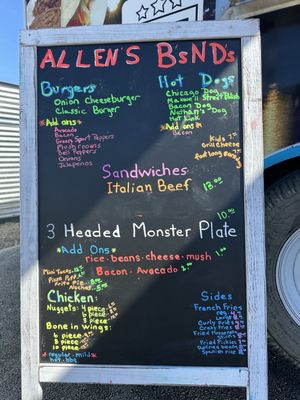 ALLEN'S BsNDs
Burgers
Onion Cheeseburger
Classic Burger
*Add ons*
Avocado
Bacon
Green Sport Peppers
Mushrooms
Bell Peppers
Onions
Jalapenos
Hot Dogs
Chicago Dog
Maxwell Street Polish
Bacon Dog
Nathan's Dog
Hot Link
*Add Ons*
Bacon
Kids
Grill Cheese
foot long corndog
Sandwiches
Italian Beef
3 Headed Monster Plate 10.00
*Add Ons*
rice·beans·cheese·mush
Bacon·Avocado
Mini Tacos
Pizza Puff
Frito Pie
Nachos
Chicken:
Nuggets: 4 piece
6 piece
8 piece
Bone in Wings:
6 piece
8 piece
10 piece
*regular·mild
hot·bbq
Sides
French Fries
reg.
Large
Curly Fries
Crazy Fries
Fried Mushrooms
Fried Pickles
Spanish rice